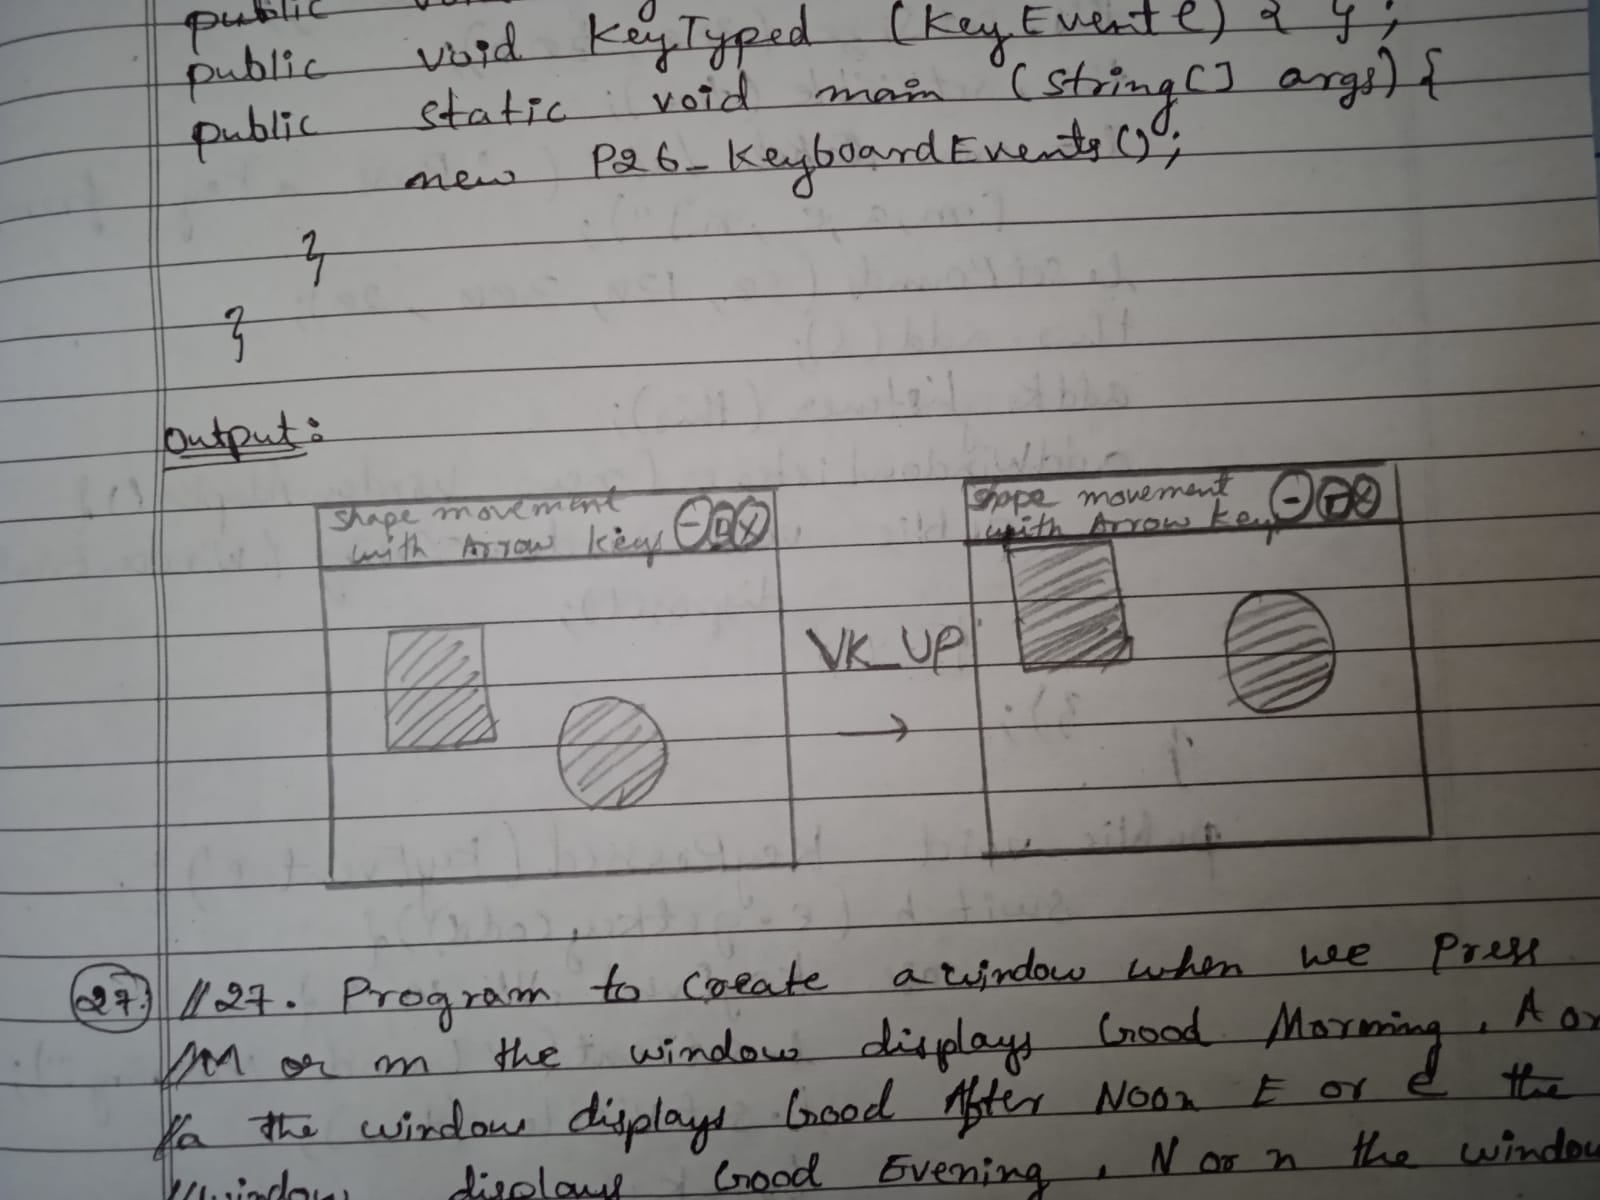 public
public void keyTyped (KeyEvent e) { };
public static void main (String[] args) {
new P26_KeyboardEvents();
}
}
Output:
Shape movement
with Arrow keys - □ X
Shape movement
with Arrow key - □ X
VK_UP
→
27. //27. Program to create a window when we press
//M or m the window displays Good Morning, A or
//a the window displays Good After Noon E or e the
//window displays Good Evening, N or n the window